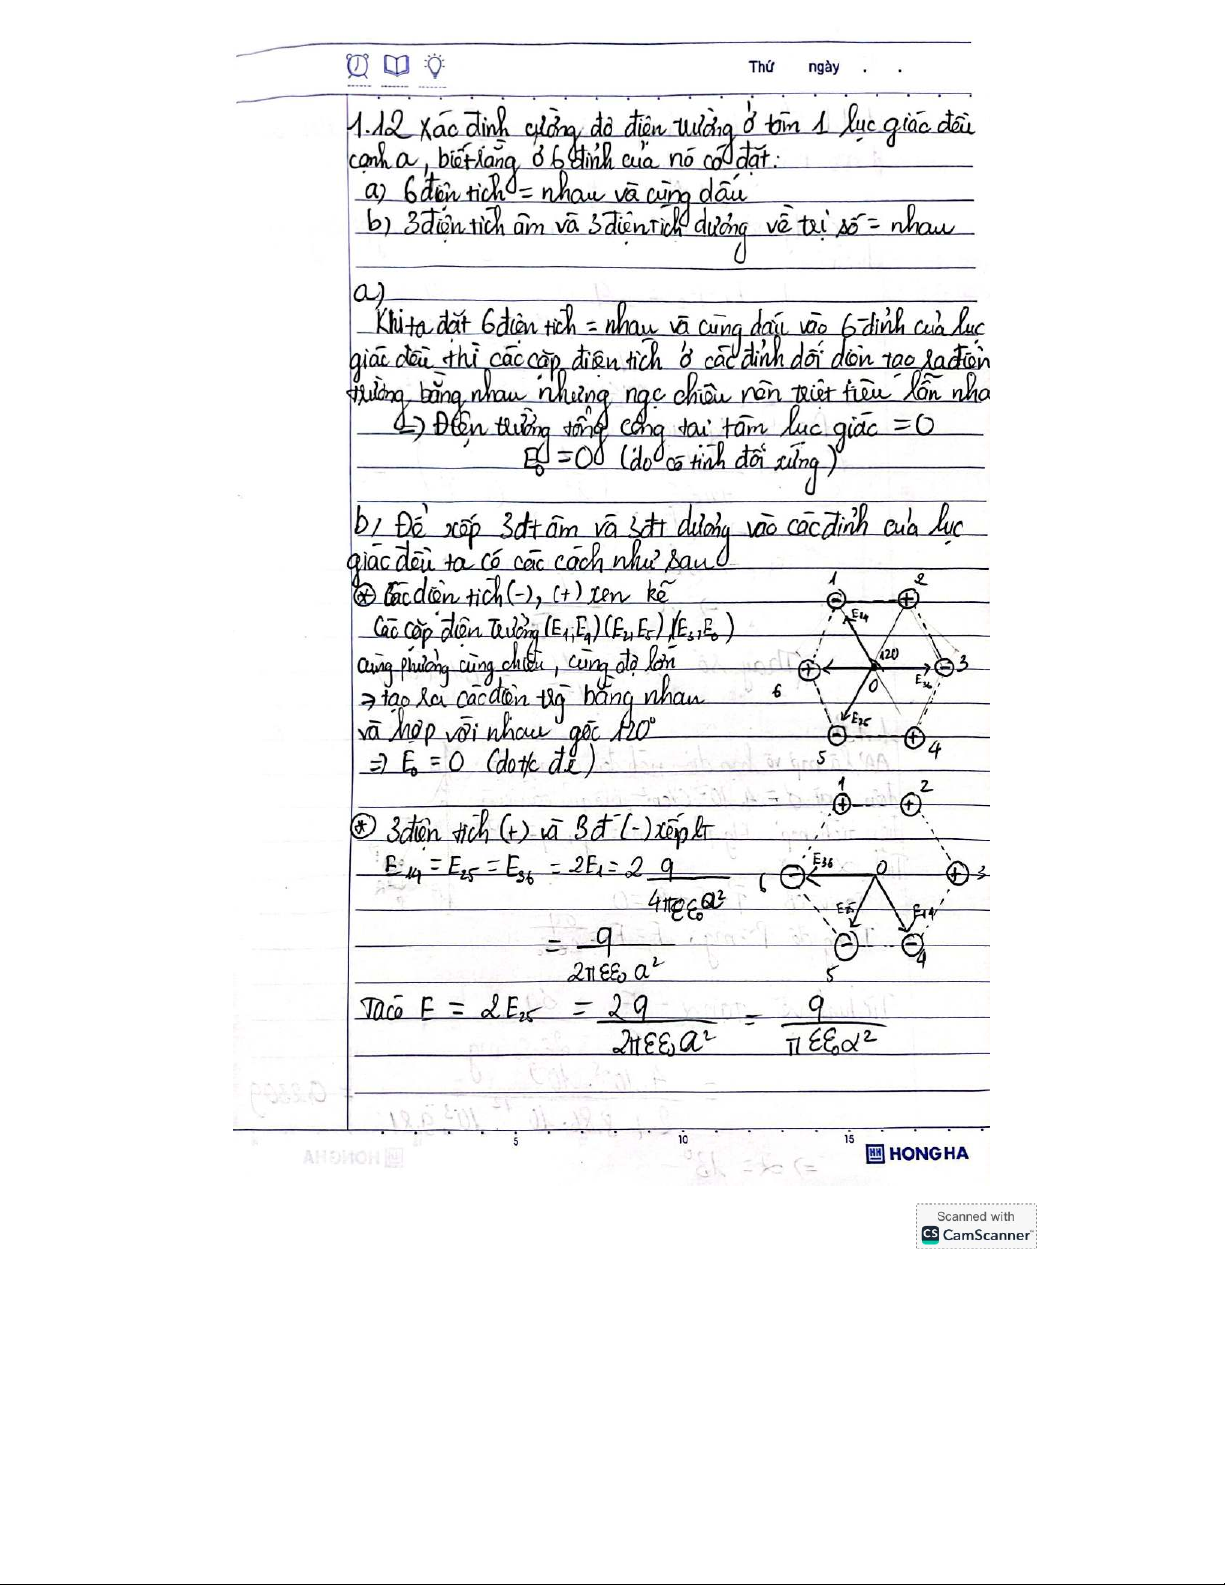 Thứ ngày . .
1.12 Xác định cường độ điện trường ở tâm 1 lục giác đều
cạnh a, biết rằng ở 6 đỉnh của nó có đặt:
a) 6 điện tích = nhau và cùng dấu
b) 3 điện tích âm và 3 điện tích dương về trị số = nhau
a)
Khi ta đặt 6 điện tích = nhau và cùng dấu vào 6 đỉnh của lục
giác đều thì các cặp điện tích ở các đỉnh đối diện tạo ra điện
trường bằng nhau nhưng ngc chiều nên triệt tiêu lẫn nha
=> Điện trường tổng cộng tại tâm lục giác = 0
E₀ = 0 (do có tính đối xứng)
b, Để xếp 3đt âm và 3đt dương vào các đỉnh của lục
giác đều ta có các cách như sau
* Các điện tích (-), (+) xen kẽ
Các cặp điện trường (E₁, E₄) (E₂, E₅), (E₃, E₆)
cùng phương cùng chiều, cùng độ lớn
⇒ tạo ra các điện trg bằng nhau
và hợp với nhau góc 120°
⇒ E₀ = 0 (do t/c đx)
1 2
E14
120
6 O E36 3
E25
5 4
* 3 điện tích (+) và 3đ (-) xếp lt
E14 = E25 = E36 = 2E₁ = 2 q / 4πεε₀a²
= q / 2πεε₀a²
1 2
6 E36 O 3
E25 E14
5 4
Ta có E = 2E25 = 2q / 2πεε₀a² = q / πεε₀a²
5 10 15
HONG HA
Scanned with
CS CamScanner